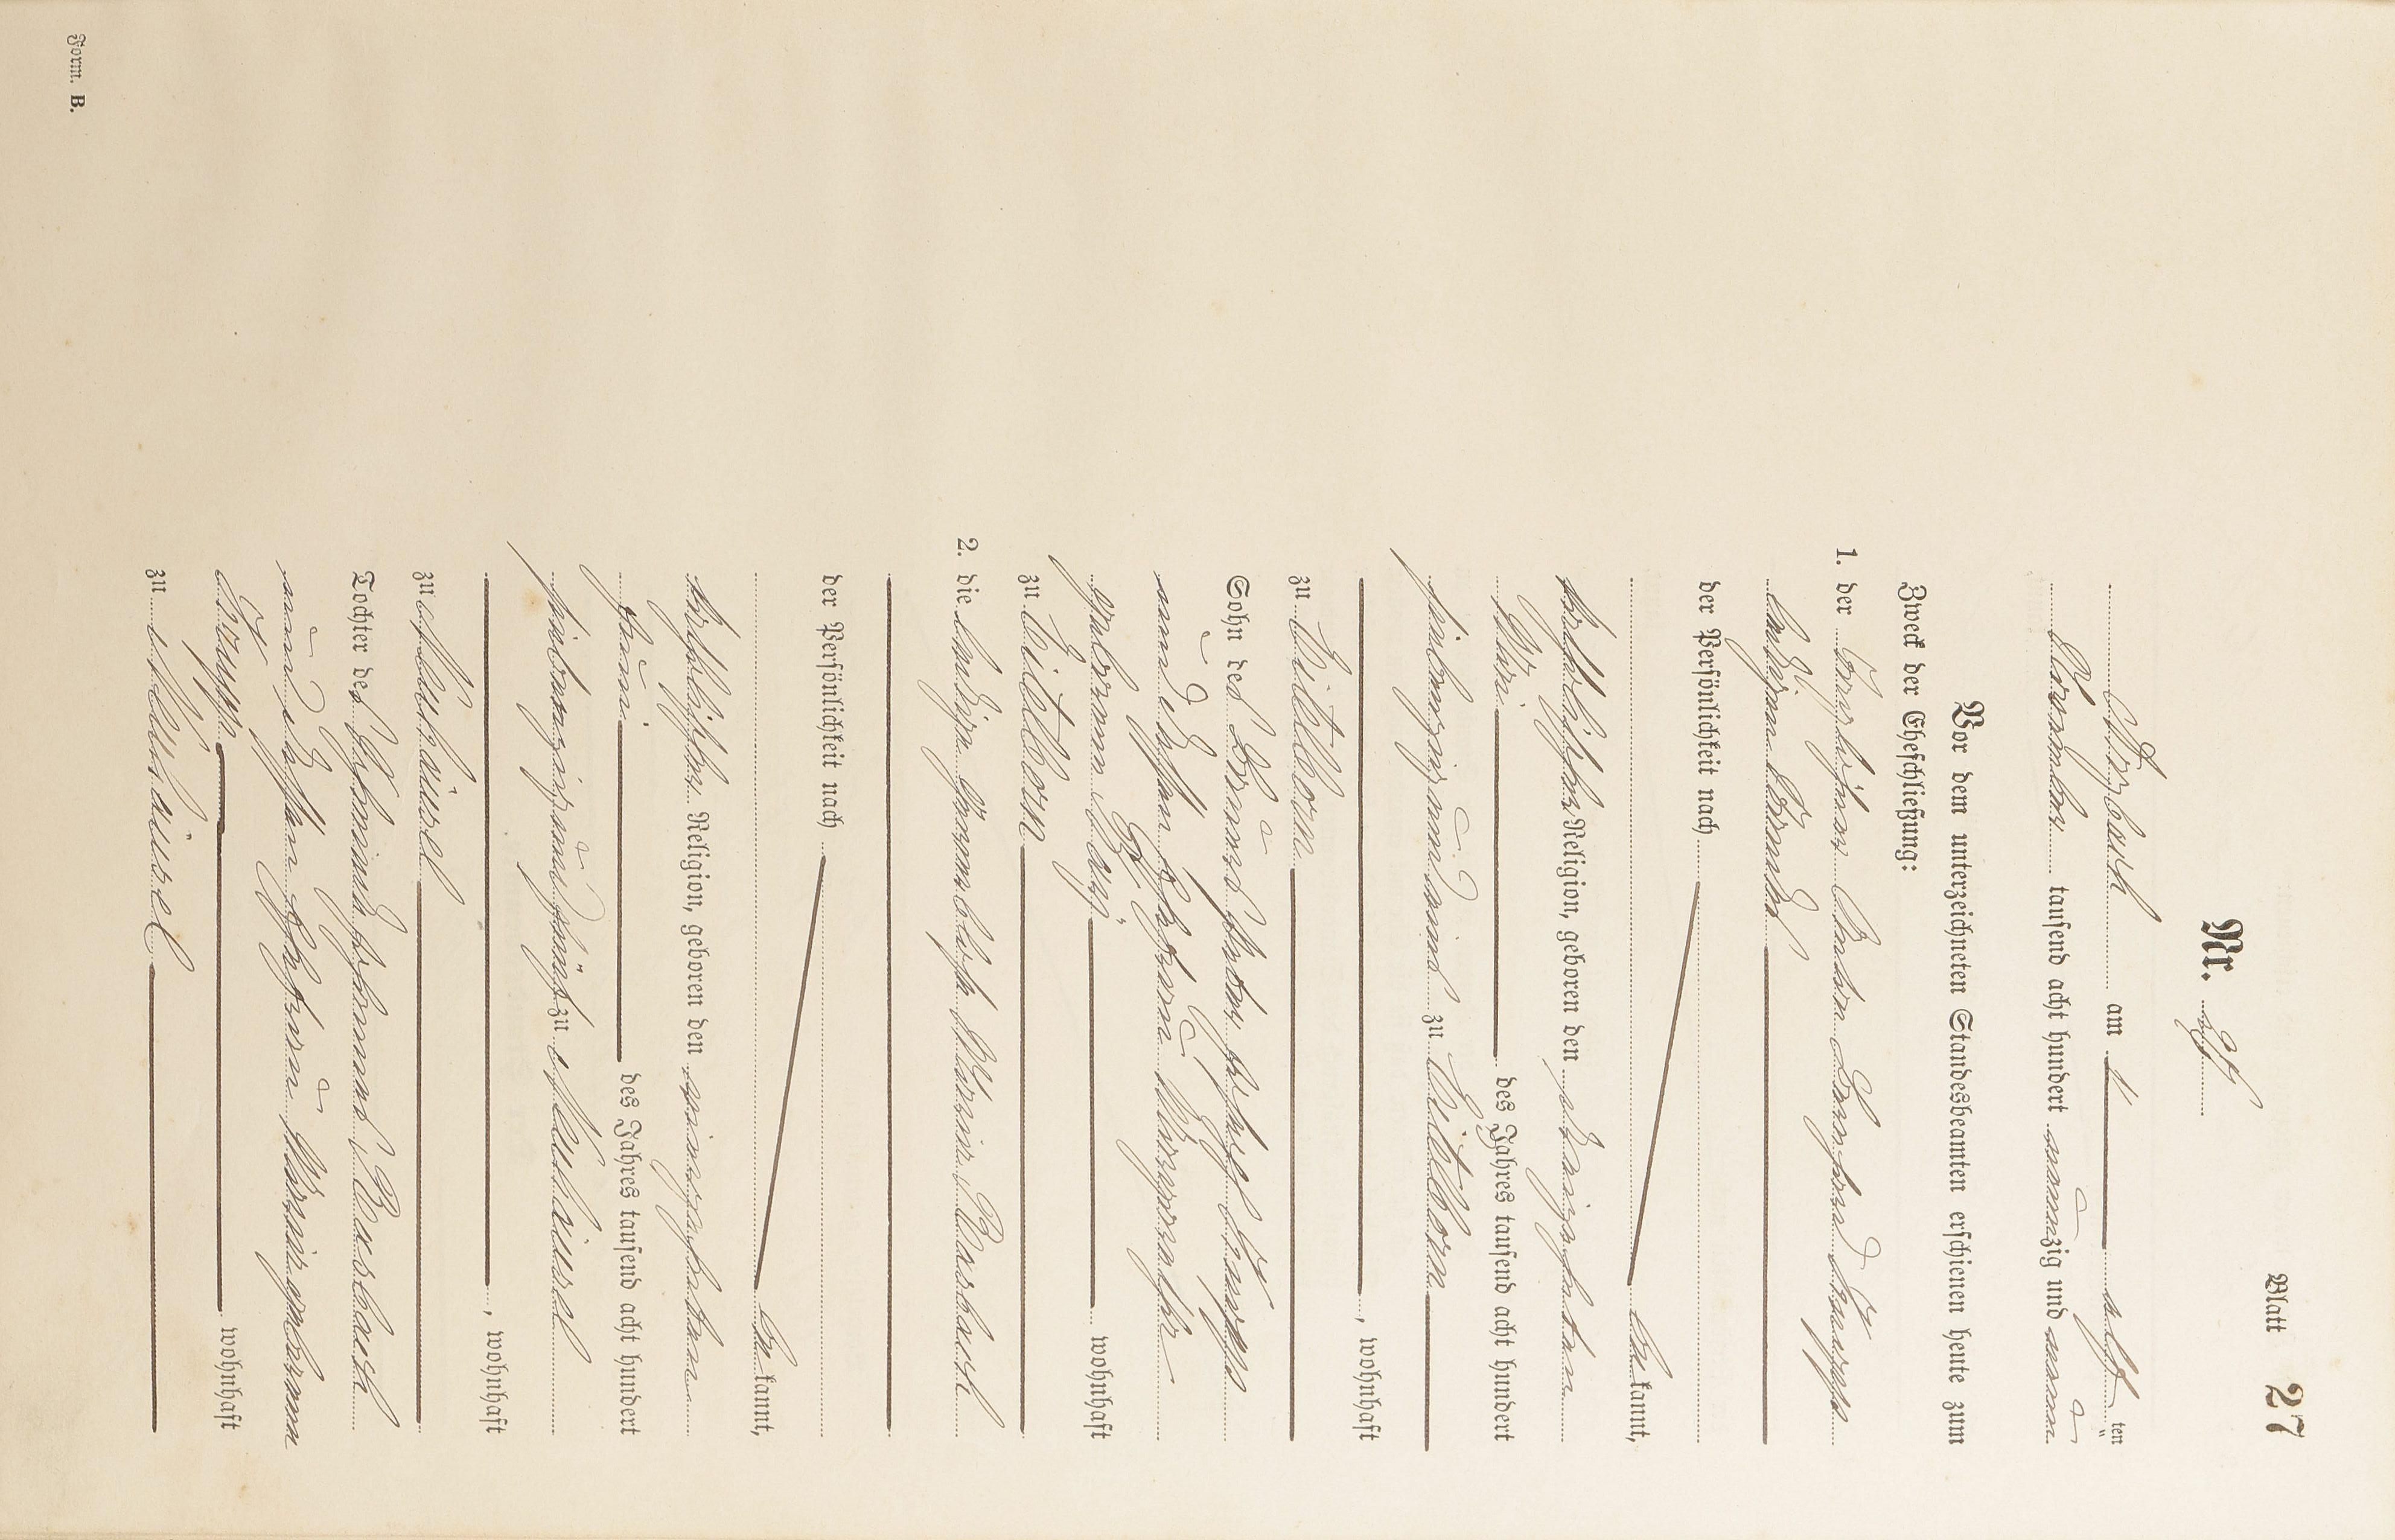 Blatt 27
Nr. Elf
Arzbach am elften
November tausend acht hundert neunzig und neun
Vor dem unterzeichneten Standesbeamten erschienen heute zum
Zweck der Eheschließung:
1. der Bergleiher Knupp
ledigen Standes
der Persönlichkeit nach
bekannt,
katholischer Religion, geboren den dreizehnten
März des Jahres tausend acht hundert
siebenzig und eins zu Eitelborn
, wohnhaft
zu Eitelborn
Sohn des Knupp
und dessen Ehefrau Margaretha
geborenen May, wohnhaft
zu Eitelborn
2. die ledige gewerblose Maria Basbach
der Persönlichkeit nach
bekannt,
katholischer Religion, geboren den neunzehnten
Juni des Jahres tausend acht hundert
siebenzig und fünf zu Neuhäusel
, wohnhaft
zu Neuhäusel
Tochter des Basbach
und dessen Ehefrau geborenen
Knopp wohnhaft
zu Neuhäusel
Form. B.